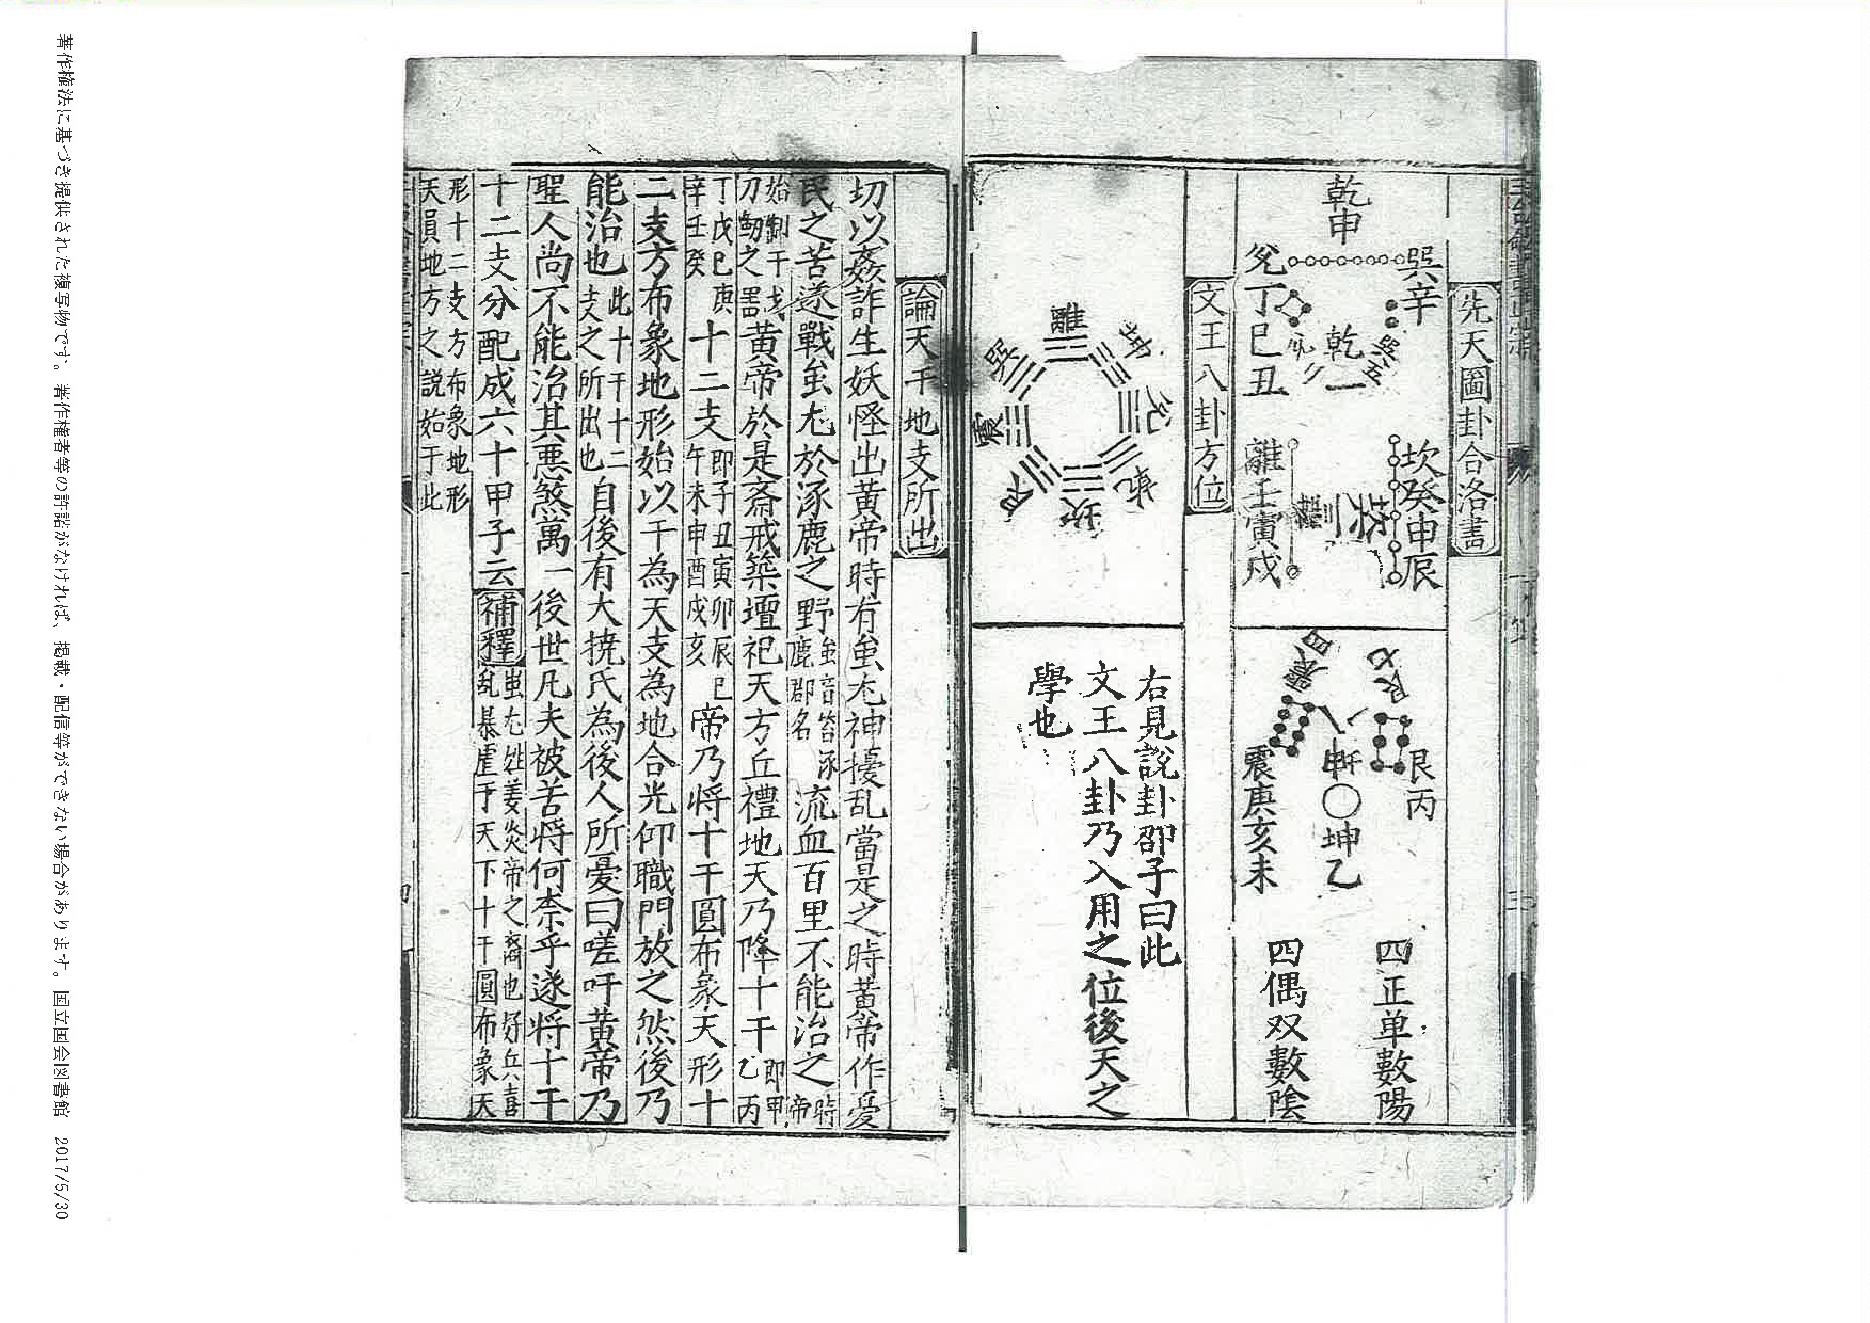 先天圖卦合洛書
乾申
巽辛
兌丁巳丑
乾一
巽五
坎癸申辰
離壬寅戌
四震
艮七
艮丙
坤乙
震庚亥未
四正单數陽
四偶双數陰
文王八卦方位
離
坤
兌
乾
坎
艮
震
巽
右見說卦邵子曰此
文王八卦乃入用之位後天之
學也
論天干地支所出
切以姦詐生妖怪出黃帝時有蚩尤神擾乱當是之時黃帝作憂
民之苦遂戰蚩尤於涿鹿之野
蚩音答涿
鹿郡名
流血百里不能治之
時帝
始制干戈
刀劒之器
黃帝於是斎戒築壇祀天方丘禮地天乃降十干
即甲
乙丙
丁戊巳庚
辛壬癸
十二支
即子丑寅卯辰巳
午未申酉戌亥
帝乃将十干圓布象天形十
二支方布象地形始以干為天支為地合光仰職門放之然後乃
能治也
此十干十二
支之所出也
自後有大撓氏為後人所憂曰嗟吁黃帝乃
聖人尚不能治其悪煞萬一後世凡夫被苦将何奈乎遂将十干
十二支分配成六十甲子云
補釋
蚩尤姓姜炎帝之裔也好兵喜
乱暴虐于天下十干圓布象天
形十二支方布象地形
天員地方之説始于此
著作権法に基づき提供された複写物です。著作権者等の許諾がなければ、掲載・配信等ができない場合があります。国立国会図書館 2017/5/30